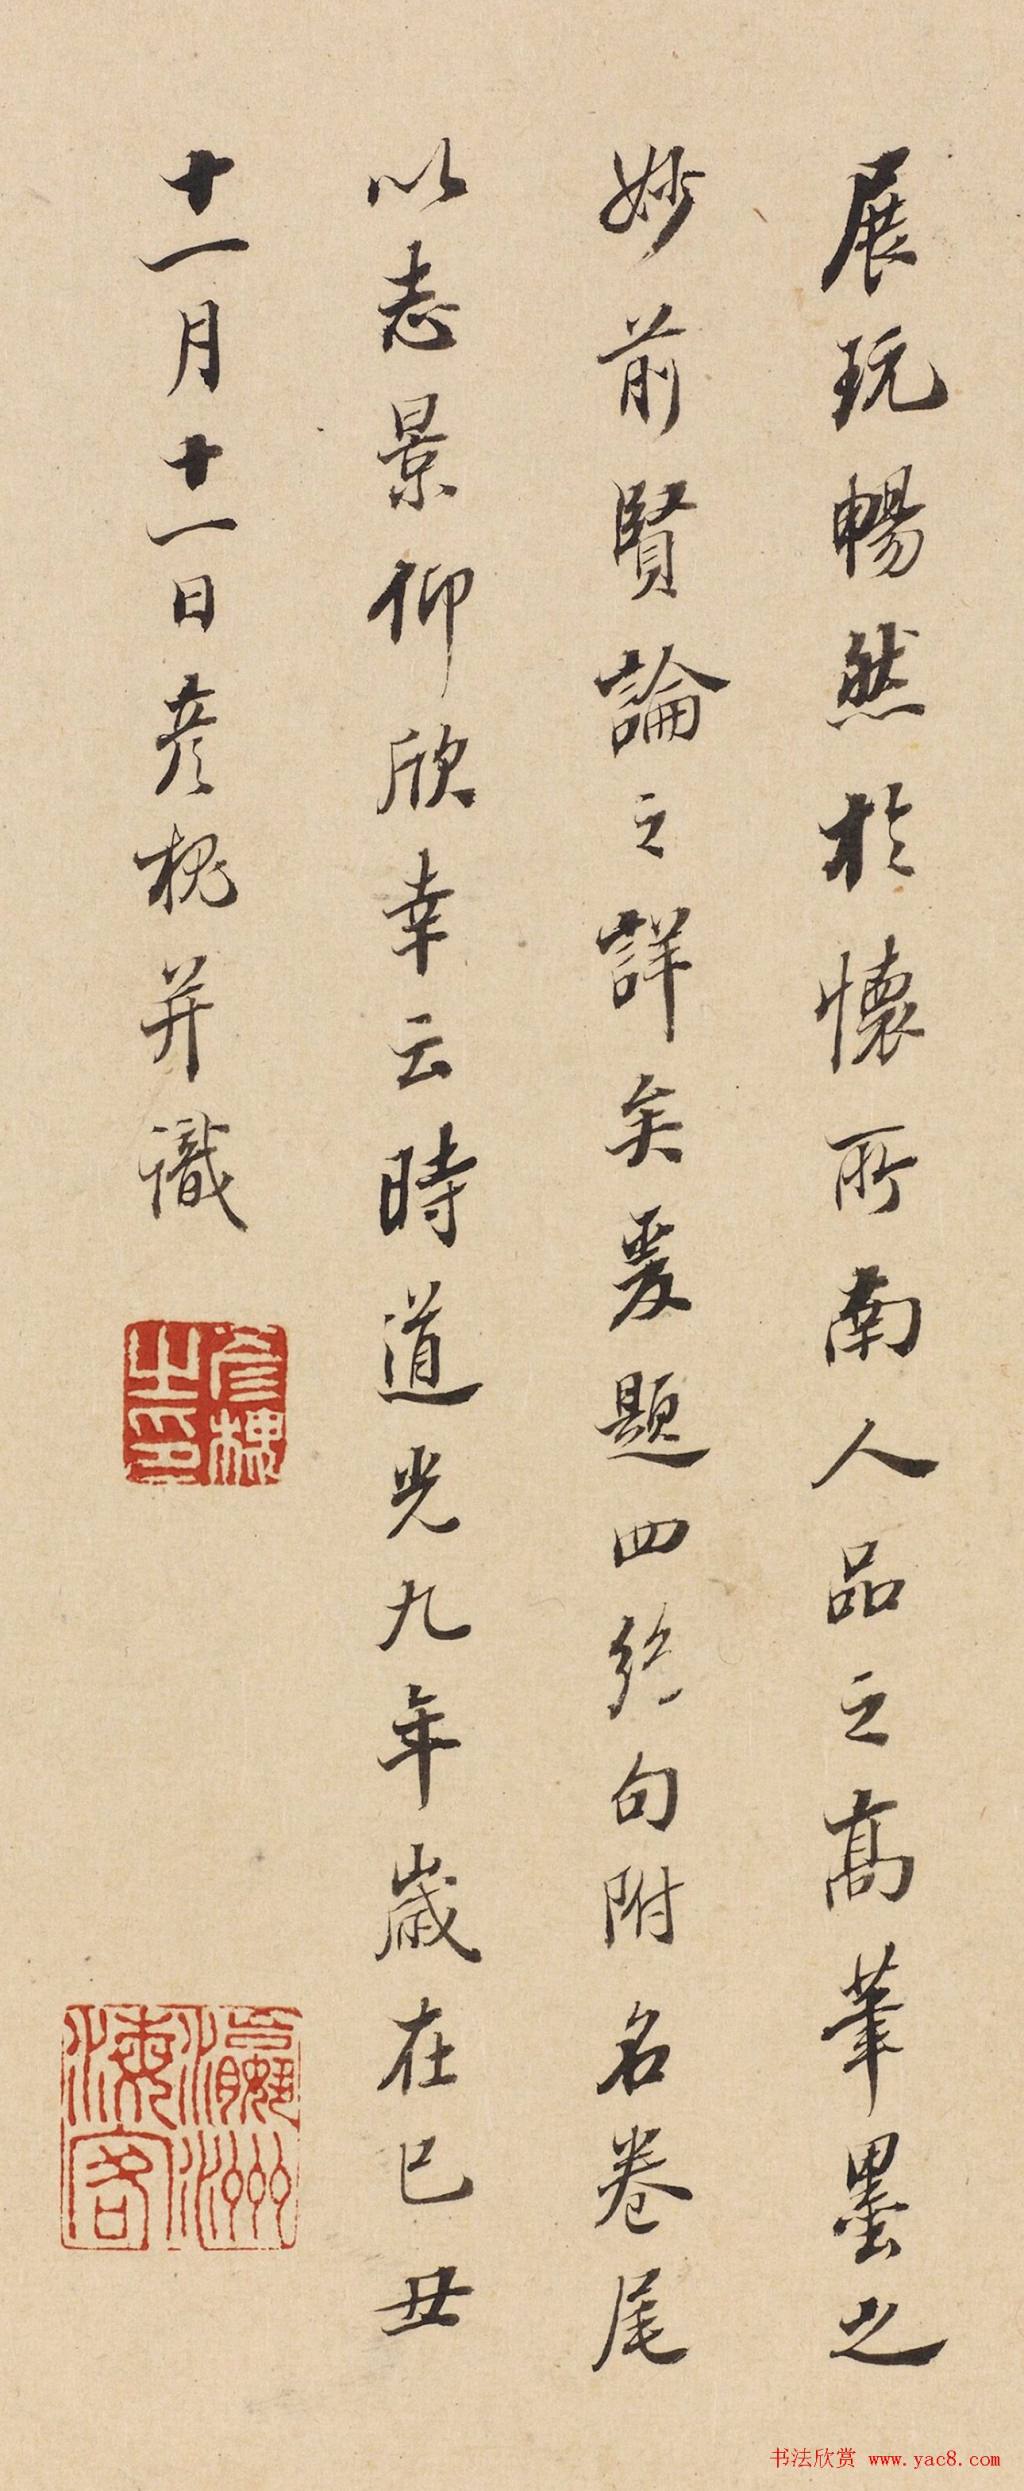 展玩暢然於懷所南人品之高筆墨之
妙前賢論之詳矣爰題四絶句附名卷尾
以志景仰欣幸云時道光九年歲在己丑
十一月十一日彦槐并識
彦槐之印
瀛洲漢客
书法欣赏 www.yac8.com